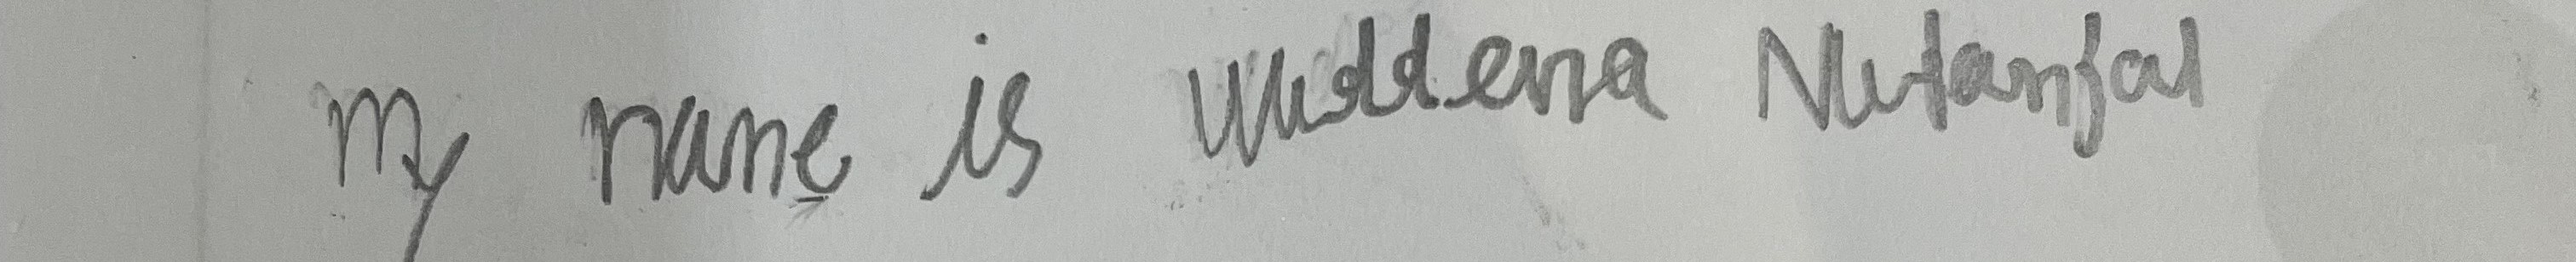 my name is Muddena Nutanjal